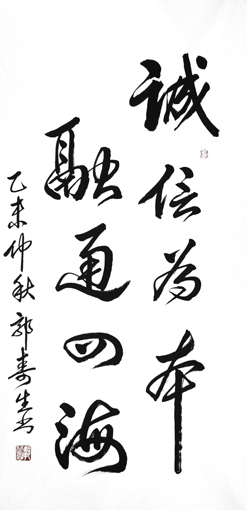 诚信为本
融通四海
乙未仲秋郭寿生书